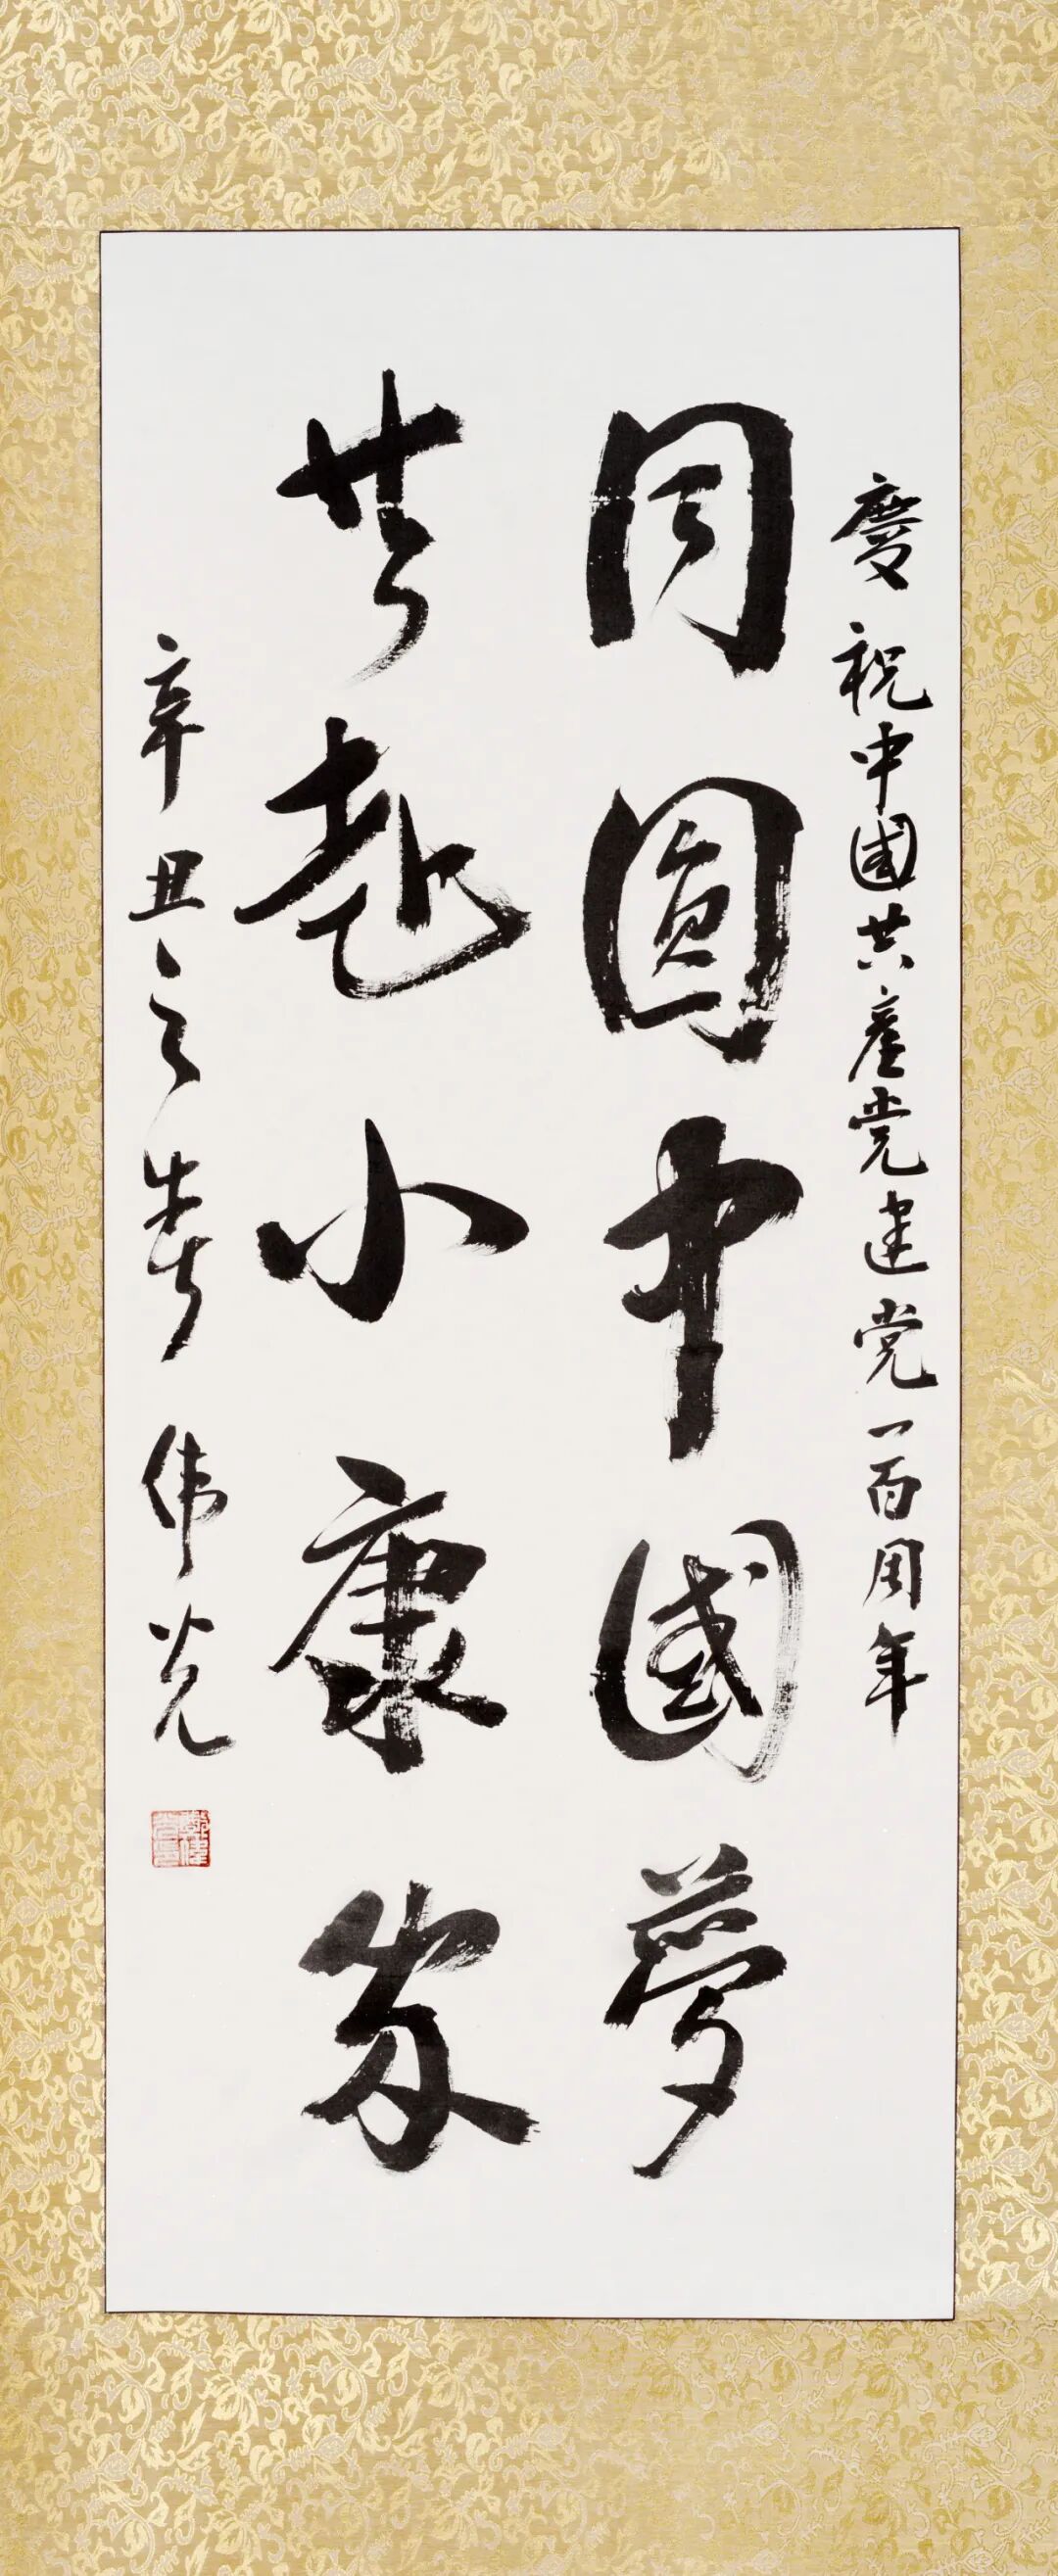 慶祝中國共產党建党一百周年
同圓中國夢
共赴小康家
辛丑之春 伟光